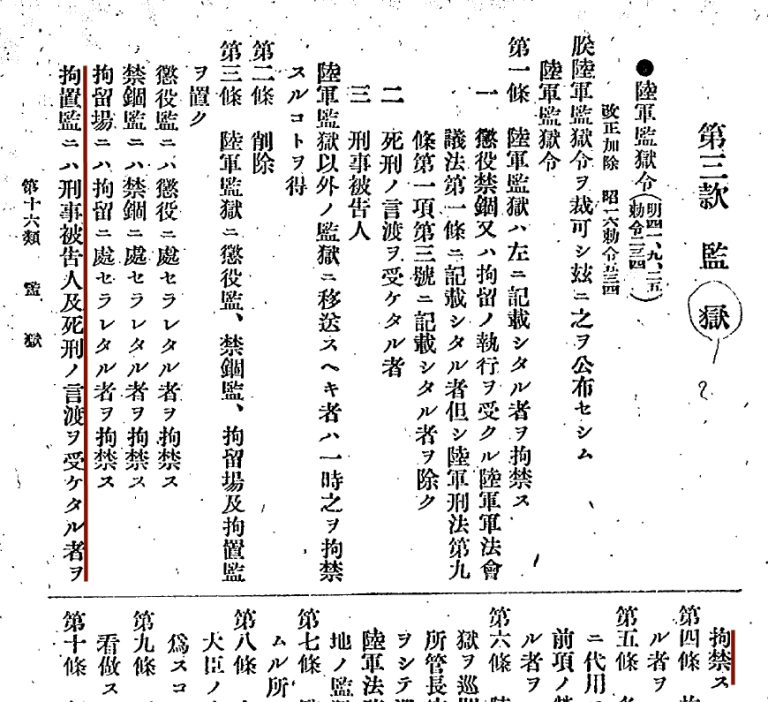 第三款　監　獄
●陸軍監獄令（明四一、九、二五勅令二三四）
改正加除　昭一六勅令
朕陸軍監獄令ヲ裁可シ玆ニ之ヲ公布セシム
陸軍監獄令
第一條　陸軍監獄ハ左ニ記載シタル者ヲ拘禁ス
一　懲役禁錮又ハ拘留ノ執行ヲ受クル陸軍軍法會
議法第一條ニ記載シタル者但シ陸軍刑法第九
條第一項第三號ニ記載シタル者ヲ除ク
二　死刑ノ言渡ヲ受ケタル者
三　刑事被告人
陸軍監獄以外ノ監獄ニ移送スヘキ者ハ一時之ヲ拘禁
スルコトヲ得
第二條　削除
第三條　陸軍監獄ニ懲役監、禁錮監、拘留場及拘置監
ヲ置ク
懲役監ニハ懲役ニ處セラレタル者ヲ拘禁ス
禁錮監ニハ禁錮ニ處セラレタル者ヲ拘禁ス
拘留場ニハ拘留ニ處セラレタル者ヲ拘禁ス
拘置監ニハ刑事被告人及死刑ノ言渡ヲ受ケタル者ヲ
第十六類　監　獄
拘禁ス
第四條
ル者ヲ
第五條
ニ代用
前項ノ
ル者ヲ
第六條　陸
獄ヲ巡
所管長
ヲシテ
陸軍法
地ノ監
第七條
ムル所
第八條
大臣ノ
爲スコ
第九條
看做ス
第十條